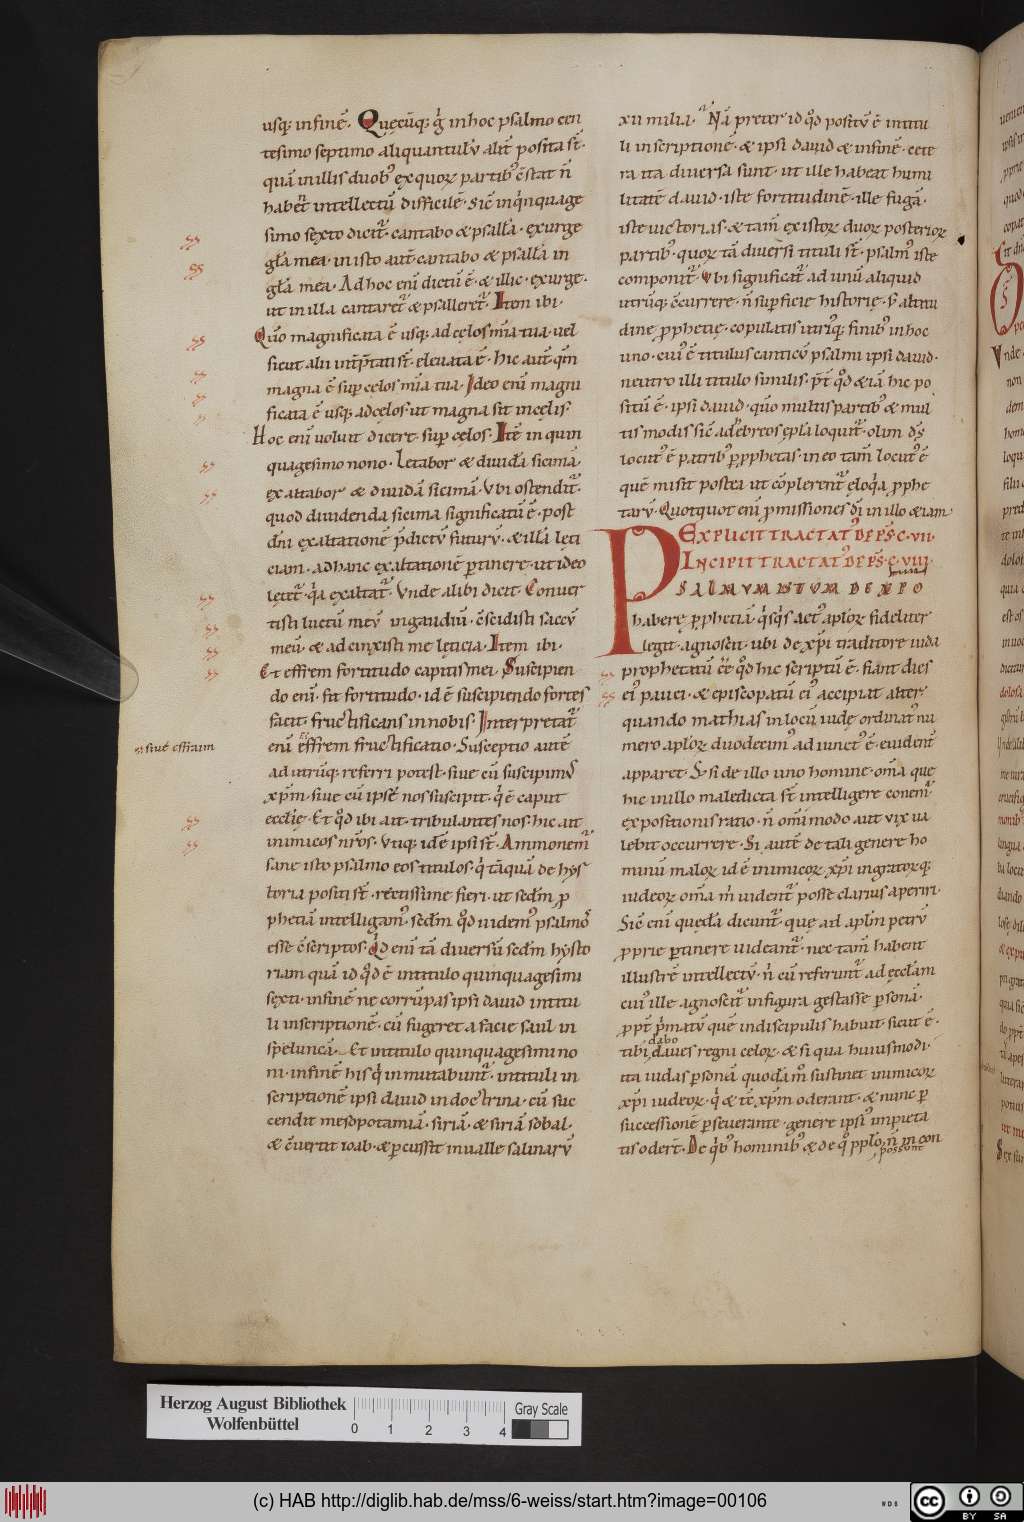 usq; infinē. Quęcūq; g̊ inhoc psalmo cen
tesimo septimo aliquantulū alit̄ posita st̄.
quā inillis duob; ex quoꝝ partib; c̄stat n̄
habet̄ intellectū difficilē. Sic̄ inq̇nquage
simo sexto dicit̄. cantabo & psallā. exurge
gl̄a mea. in isto aut̄ cantabo & psallā in
gl̄a mea. Ad hoc eni dictū ē. & illic. exurge.
ut in illa cantaret̄ & psalleret̄. Item ibi.
Qūo magnificata ē usq; ad cęlos mīa tua. vel
sicut alii int̄p̄tati st̄. eleuata ē. hic aut̄. qm̄
magna ē sup celos mīa tua. Ideo eni magni
ficata ē usq; ad cęlos. ut magna sit in cęlis.
Hoc eni uoluit dicere. sup celos. Itē in quin
quagesimo nono. Letabor & diuidā sicimā.
exaltabor & diuidā sicimā. Vbi ostendit̄.
quod diuidenda sicima significatū ē. post
dn̄i exaltationē p̄dictū futurū. & illā lęti
ciam. ad hanc exaltationē ptinere. ut ideo
lętet̄. q̇a exaltat̄. Vnde alibi dicit. Conuer
tisti luctū meū in gaudiū. c̄scidisti saccū
meū. & adcinxisti me lęticia. Item ibi.
Et effrem fortitudo capitis mei. Suscipien
do eni. fit fortitudo. id ē suscipiendo fortes
facit. fructificans in nobis. Interpretat̄
enī effrem fructificatio. Susceptio autē
ad utrūq; referri potest. siue cū suscipim;
xp̄m. siue cū ipse nos suscipit. q̇ ē caput
ecclię. Et qd̊ ibi ait. tribulantes nos. hic ait
inimicos nr̄os. Vtiq; idē ipsi st̄. Ammonem̄
sane isto psalmo eos titulos. q̇ tāquā de hys
toria positi st̄. rectissime fieri. ut scdm̄ p
phetiā intelligam;. scdm̄ qd̊ uidem; psalmos
esse c̄scriptos. Qḋ eni tā diuersū scdm̄ hysto
riam quā id qd̊ ē in titulo quinquagesimi
sexti. infinē ne corrūpas ipsi dauid in titu
li inscriptionē. cū fugeret a facie saul in
spęluncā. Et in titulo quinquagesimi no
ni. infinē his q̇ inmutabunt̄. in tituli in
scriptionē ipsi dauid in doctrina. cū suc
cendit mesopotamiā. siriā. & siriā sobal.
& c̄uertit ioab. & pcussit in ualle salinarū
siue effraim
xii milia. Nā preter id qd̊ positū ē in titu
li inscriptionē. & ipsi dauid & infinē. cete
ra ita diuersa sunt. ut ille habeat humi
litatē dauid. iste fortitudinē. ille fugā.
iste uictorias. & tam̄ ex istoꝝ duoꝝ posterioꝝ
partib;. quoꝝ tā diuersi tituli st̄. psalm; iste
componit̄. Vbi significat̄ ad unū aliquid
utrūq; c̄currere. n̄ supficie historię. s; altitu
dine p̱phetię. copulatis utriq; finib; in hoc
uno. cui; ē titulus canticū psalmi ipsi dauid.
neutro illi titulo similis. p̄t̄ qd̊ & iā hic po
situ ē. ipsi dauid. qūo multis partib; & mul
tis modis sic̄ ad ebreos ępl̄a loquit̄. olim ds̄
locut; ē patrib; p̱phetas. in eo tam̄ locut; ē
quē misit postea ut c̄plerent̄ ęloq̇a p̱phe
tarū. Quotquot eni p̱missiones di in illo & iam.
EXPLICIT TRACTAT; DE PS. C. VII.
INCIPIT TRACTAT; DE PS. C. VIII.
PSALMUM ISTUM DE XPO
habere p̱phetiā q̇sq̇s act; apl̄oꝝ fideliter
legit. agnoscit. ubi de xp̄i traditore iuda
prophetatū ēē qd̊ hic scriptū ē. fiant dies
ei; pauci. & episcopatū ei; accipiat alter.
quando mathias in locū iudę ordinat; nu
mero apl̄oꝝ duodecim; adiunct; ē. euident̄
apparet. S; si de illo uno homine. om̄a que
hic in illo maledicta st̄ intelligere conem̄.
expositionis ratio. n̄ om̄imodo aut uix ua
lebit occurrere. Si autē de tali genere ho
minū maloꝝ id ē inimicoꝝ xp̄i ingratoꝝq;
iudeoꝝ om̄a m̊ uident̄ posse clarius aperiri.
Sic̄ eni quędā dicunt̄. que ad apl̄m petrū
p̱prie ptinere uideant̄. nec tam̄ habent
illustrē intellectū. n̊ cū referunt̄ ad eccl̄am
cui; ille agnoscit̄ in figura gestasse psonā.
p̱pt̄ p̊matū quē in discipulis habuit. sicut ē.
dabo
tibi claues regni celoꝝ. & si qua huiusmodi.
ita iudas psonā quodā m̊ sustinet inimicoꝝ
xp̄i iudeoꝝ. q̇ & tē xp̄m oderant. & nunc p
successionē pseuerante. genere ipsi; impieta
tis oder̄t. De q̇b; hominib; & de q̊ pplo n̄ in con
possunt
Herzog August Bibliothek
Wolfenbüttel
0 1 2 3 4
Gray Scale
(c) HAB http://diglib.hab.de/mss/6-weiss/start.htm?image=00106
cc BY SA